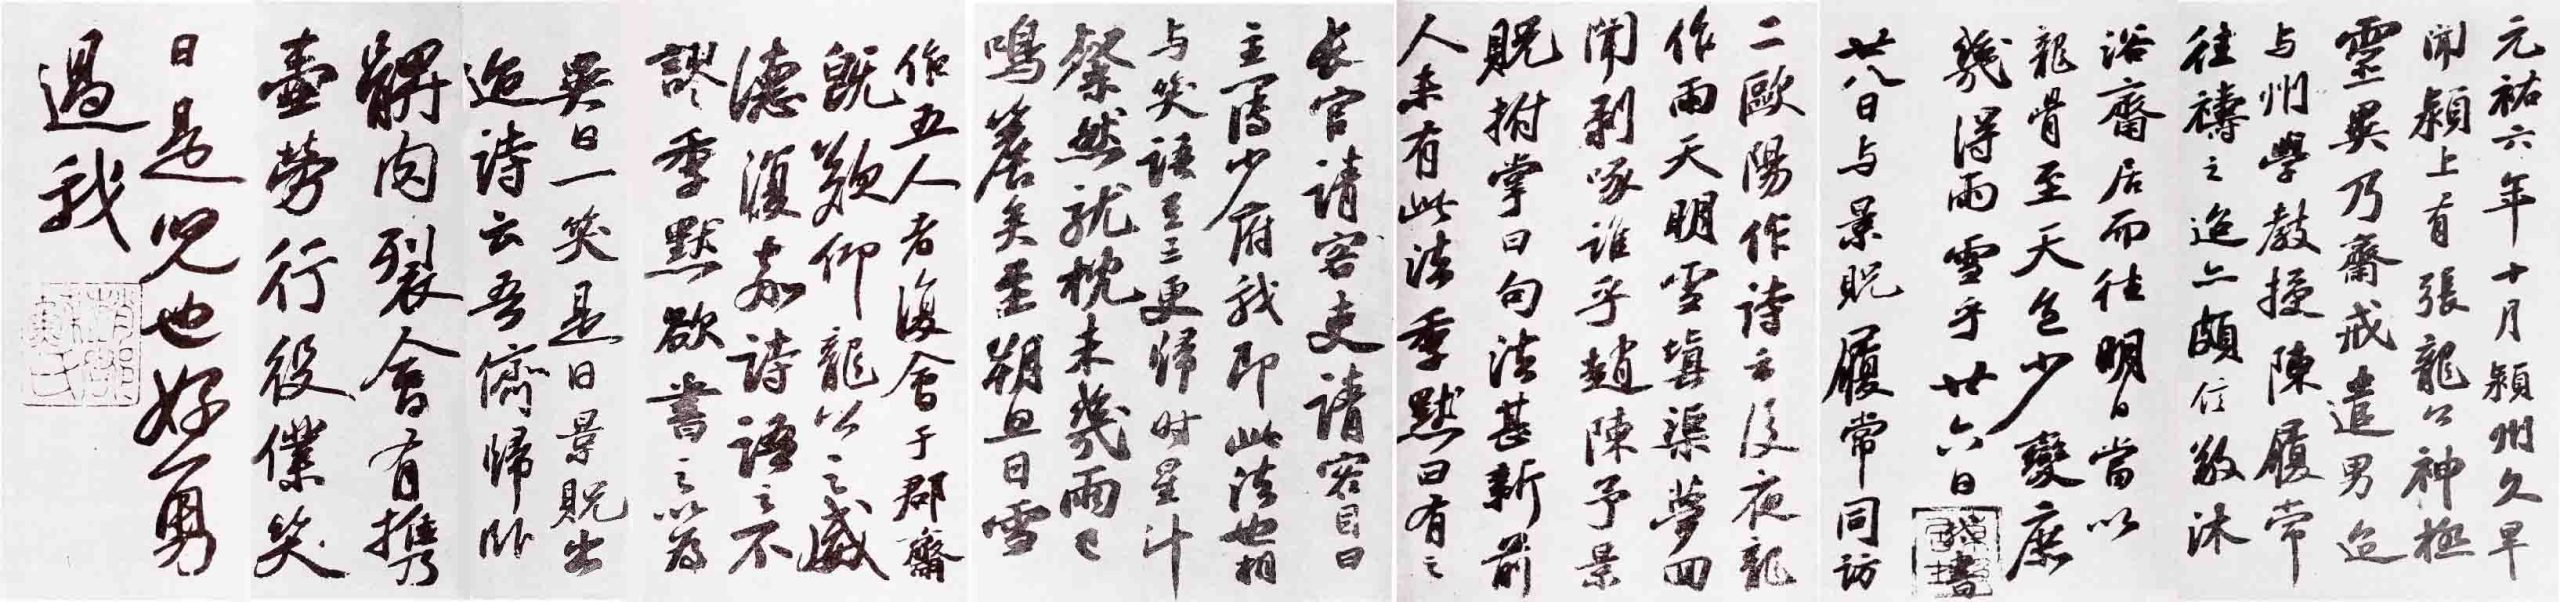 元祐六年十月潁州久旱
聞潁上有張龍公神極
靈異乃齋戒遣男迨
与州學教授陳履常
往禱之迨亦頗信敬沐
浴齋居而往明日當以
龍骨至天色少變庶
幾得雨雪乎廿六日軾書
廿八日与景貺履常同訪
二歐陽作詩云後夜龍
作雨天明雪填渠夢回
聞剥啄誰乎趙陳予景
貺拊掌曰句法甚新前
人未有此法季默曰有之
長官請客吏請客目曰
主簿少府我即此法也相
与笑語至三更歸时星斗
粲然就枕未幾雨已
鳴簷矣至朔旦日雪
作五人者復會于郡齋
既歎仰龍公之威
德復嘉詩語之不
謬季默欲書之以爲
異日一笑是日景貺出
迨詩云吾儕歸卧
髀肉裂會有攜
壺勞行役僕笑
曰是兒也好勇
過我